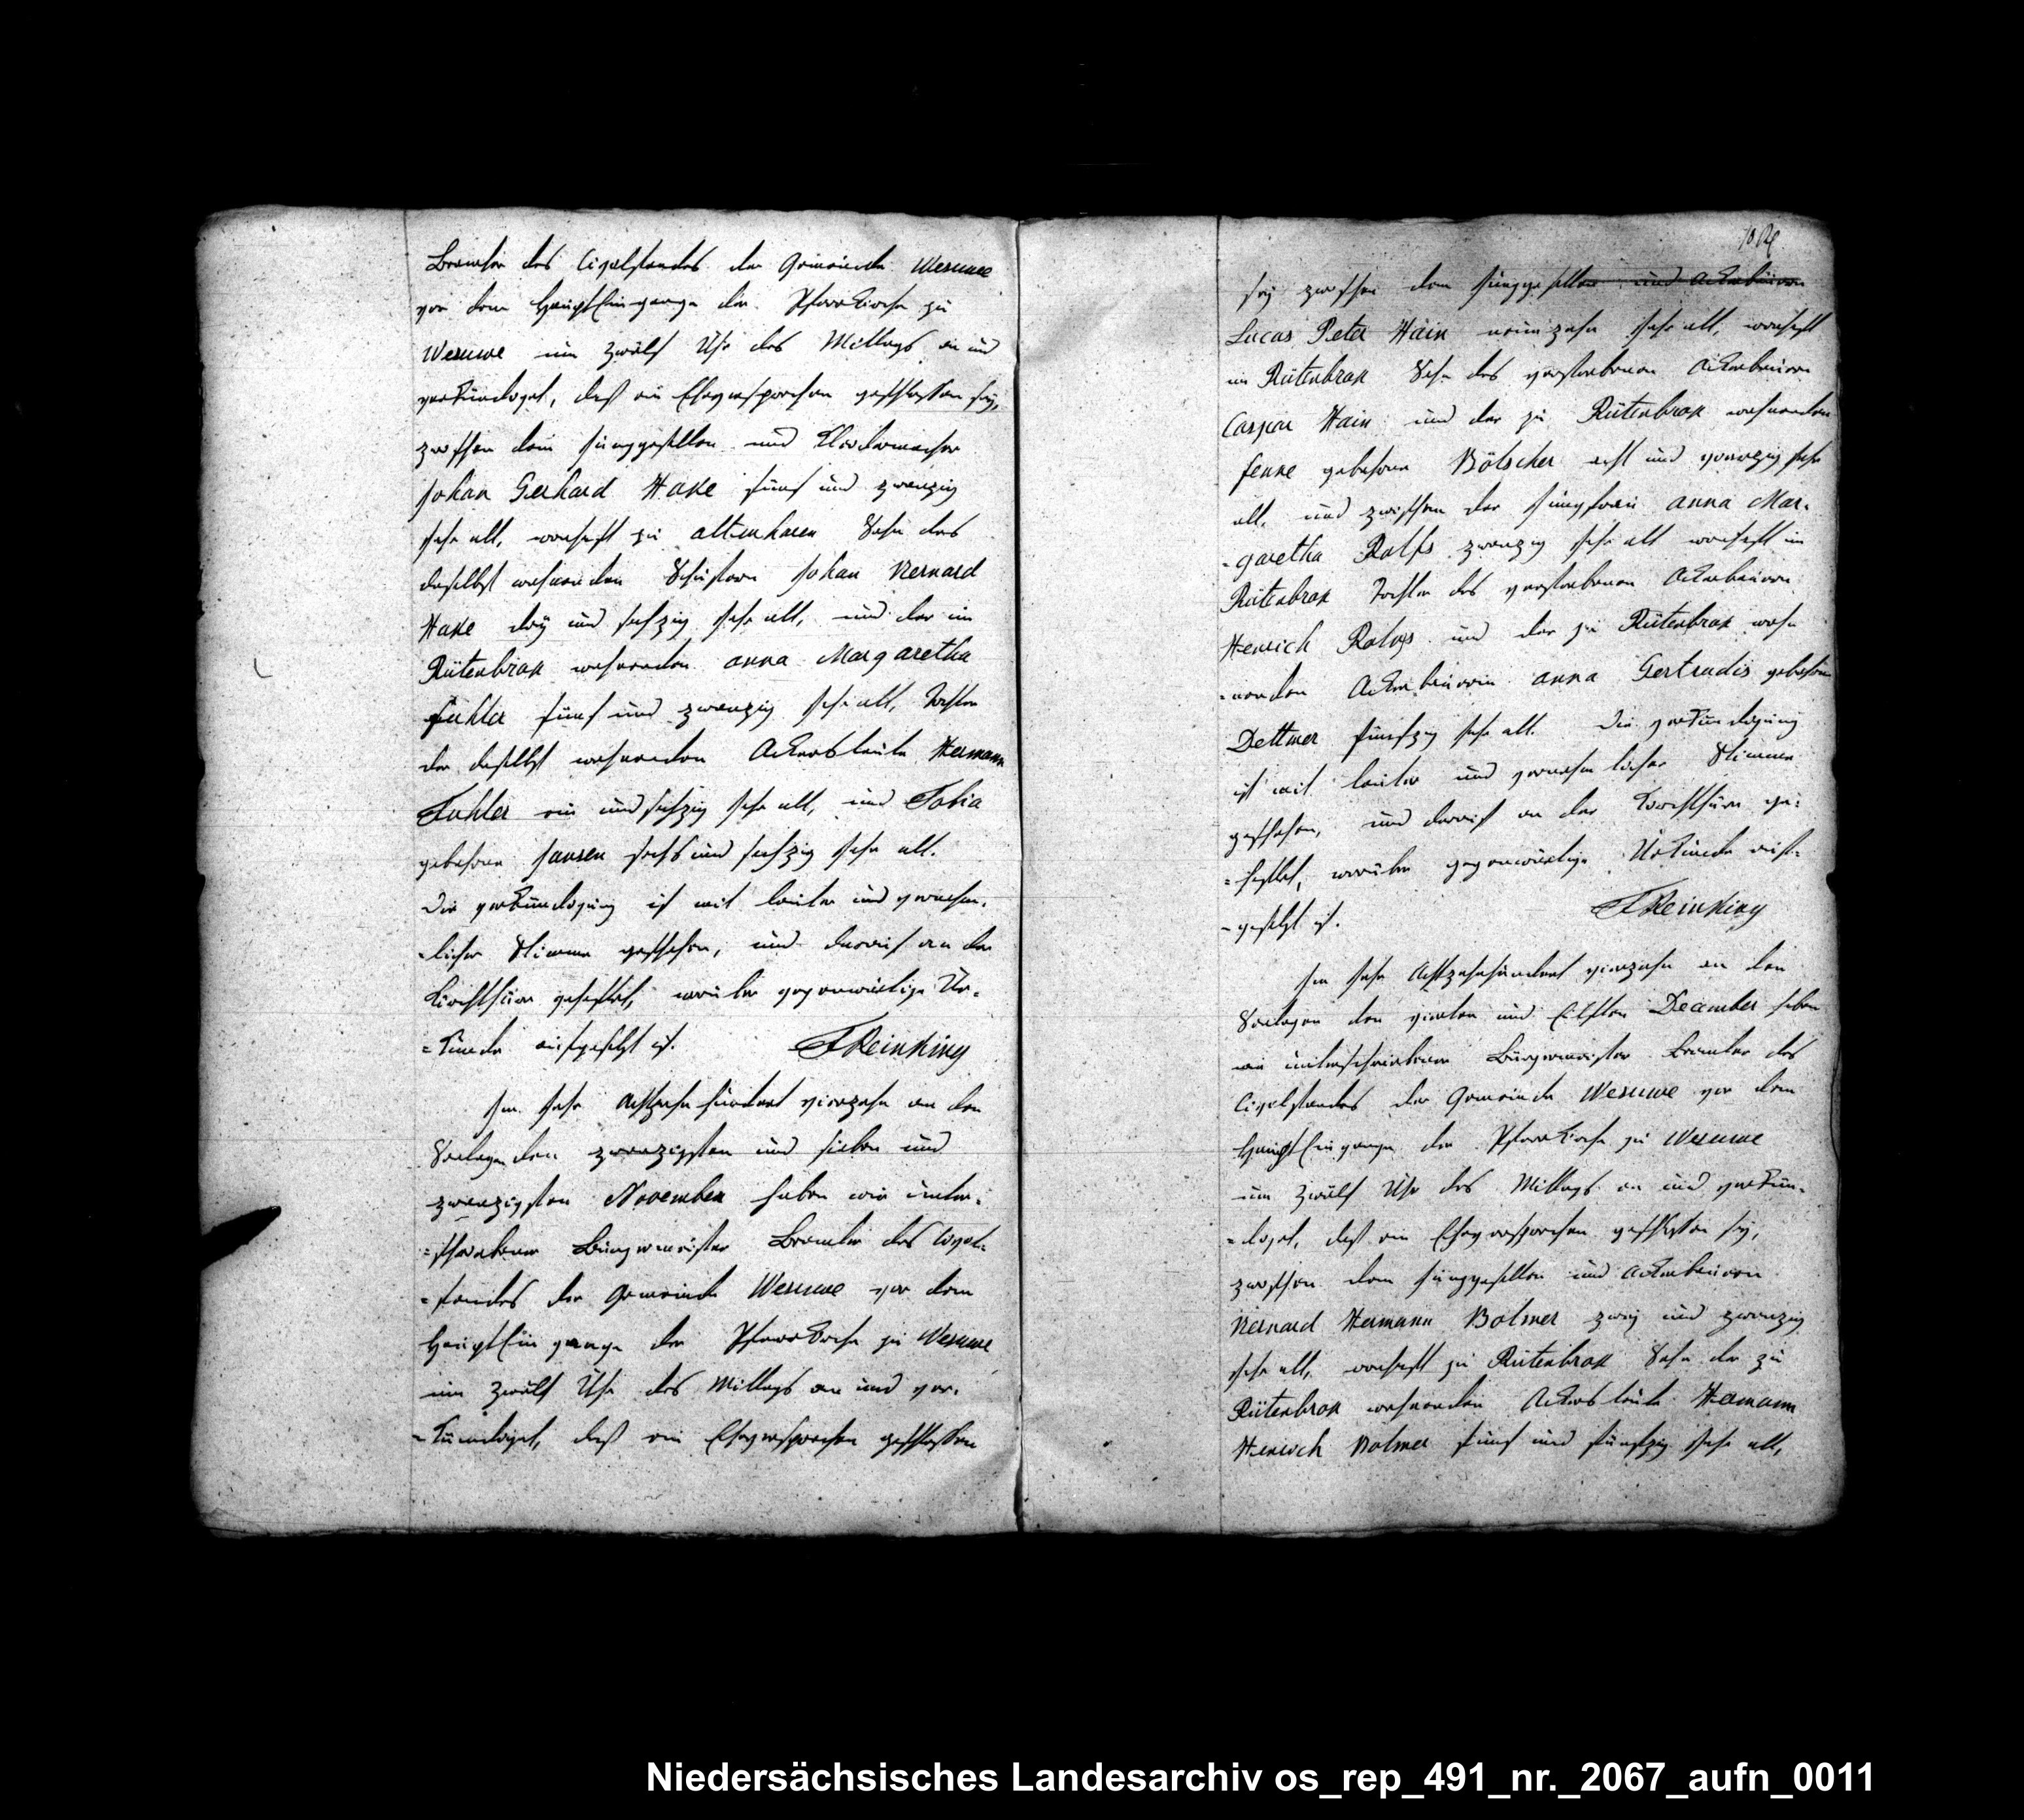 Beamter des Civilstandes der Gemeinde Wesuwe
vor dem HauptEingange der Pfarrkirche zu
Wesuwe um zwölf Uhr des Mittags an und
verkündiget, daß ein Eheversprechen geschlossen sey,
zwischen dem Junggesellen und Kleidermacher
Johan Gerhard Hake fünf und zwanzig
Jahr alt, wonhaft zu altenharen Sohn des
daselbst wohnenden Johan Bernard
Hake drey und sechzig Jahr alt, und der im
Rütenbrok wohnenden anna Margaretha
Fuhler fünf und zwanzig Jahr alt, Tochter
der daselbst wohnenden Ackersleute Hermann
Fuhler ein und sechzig Jahr alt, und
gebohrne Jansen sechs und sechzig Jahr alt.
Die verkündigung ist mit lauter und vernehm-
-licher Stimme geschehen, und darauf an der
Kirchthüre geheftet, worüber gegenwärtige Ur-
=kunde aufgesetzt ist. FReinking
Im Jahr Achtzehnhundert vierzehn an den
Sontagen den zwanzigsten und sieben und
zwanzigsten November haben wir unter-
=schriebener Bürgermeister Beamter des Civil-
=standes der Gemeinde Wesuwe vor dem
HauptEingange der Pfarrkirche zu Wesuwe
um zwölf Uhr des Mittags an und ver-
=kündiget, daß ein Eheversprechen geschlossen
sey zwischen dem Junggesellen und Ackerbauern
Lucas Peter Hain neunzehn Jahr alt, wonhaft
im Rütenbrok Sohn des verstorbenen Ackerbauern
Caspar Hain und der zu Rütenbrok wohnenden
fenne gebohrne Bölscher acht und Jahr
alt, und zwischen der Jungfrau anna Mar-
-garetha Rolfs zwanzig Jahr alt wonhaft im
Rütenbrok Tochter des verstorbenen Ackerbauern
Henrich und der zu Rütenbrok woh
-nenden Ackerbäuerin anna Gertrudis gebohrne
Dettmer fünfzig Jahr alt. Die verkündigung
ist mit lauter und vernehmlicher Stimme
geschehen, und darauf an der Kirchthüre ge-
=heftet, worüber gegenwärtige Urkunde auf-
-gesetzt ist. FReinking
Im Jahr Achtzehnhundert vierzehn an den
Sontagen den vierten und Eilften December haben
wir unterschriebener Bürgermeister Beamter des
Civilstandes der Gemeinde Wesuwe vor dem
HauptEingange der Pfarrkirche zu Wesuwe
um zwölf Uhr des Mittags an und verkün-
-diget, daß ein Eheversprechen geschlossen sey,
zwischen dem Junggesellen und Ackerbauern
Bernard Hermann Bolmer zwey und zwanzig
Jahr alt, wonhaft zu Rütenbrok Sohn der zu
Rütenbrok wohnenden Ackersleute Hermann
Henrich Bolmer fünf und fünfzig Jahr alt,
Niedersächsisches Landesarchiv os_rep_491_nr._2067_aufn_0011